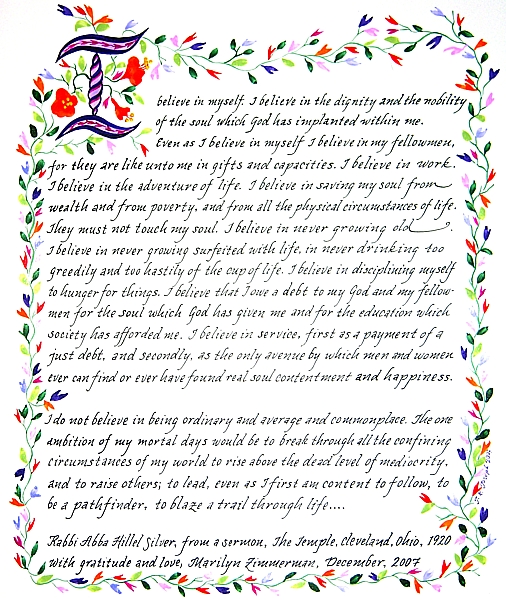 I believe in myself. I believe in the dignity and the nobility
of the soul which God has implanted within me.
Even as I believe in myself I believe in my fellowmen,
for they are like unto me in gifts and capacities. I believe in work.
I believe in the adventure of life. I believe in saving my soul from
wealth and from poverty, and from all the physical circumstances of life.
They must not touch my soul. I believe in never growing old.
I believe in never growing surfeited with life, in never drinking too
greedily and too hastily of the cup of life. I believe in disciplining myself
to hunger for things. I believe that I owe a debt to my God and my fellow
men for the soul which God has given me and for the education which
society has afforded me. I believe in service, first as a payment of a
just debt, and secondly, as the only avenue by which men and women
ever can find or ever have found real soul contentment and happiness.
I do not believe in being ordinary and average and commonplace. The one
ambition of my mortal days would be to break through all the confining
circumstances of my world to rise above the dead level of mediocrity,
and to raise others; to lead, even as I first am content to follow, to
be a pathfinder, to blaze a trail through life....
Rabbi Abba Hillel Silver, from a sermon, The Temple, Cleveland, Ohio, 1920
with gratitude and love, Marilyn Zimmerman, December, 2007